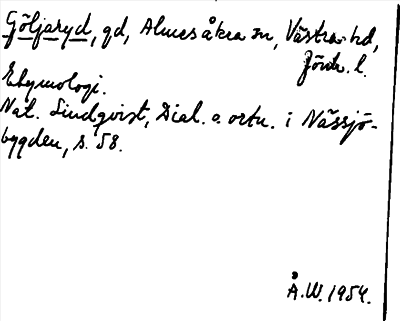 Göljaryd, gd, Almesåkra sn, Västra hd,
Jönk. l.
Etymologi.
Nat. Lindqvist, Dial. o. ortn. i Nässjö-
bygden, s. 58.
Å.W. 1954.